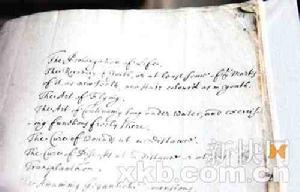 The Prolongation of Life.
The Recovery of Youth, or at least some of the Marks
of it, as new Teeth, new Hair colour'd as in youth.
The Art of Flying.
The Art of Continuing long under Water, and exercising
functions freely there.
The Cure of Wounds at a Distance.
The Cure of Diseases at a Distance or at
Transplantation.
Attaining Gigantick Dimensions.
新快网
xkb.com.cn